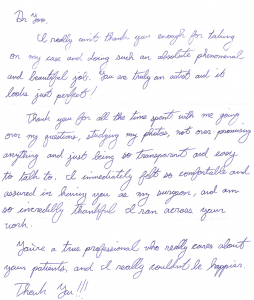 Dr Yoo,
I really can't thank you enough for taking
on my case and doing such an absolute phenomenal
and beautiful job. You are truly an artist and it
looks just perfect!
Thank you for all the time spent with me going
over my questions, studying my photos, not over promising
anything and just being so transparent and easy
to talk to. I immediately felt so comfortable and
assured in having you as my surgeon, and am
so incredibly thankful I ran across your
work.
You're a true professional who really cares about
your patients, and I really couldn't be happier.
Thank You!!!